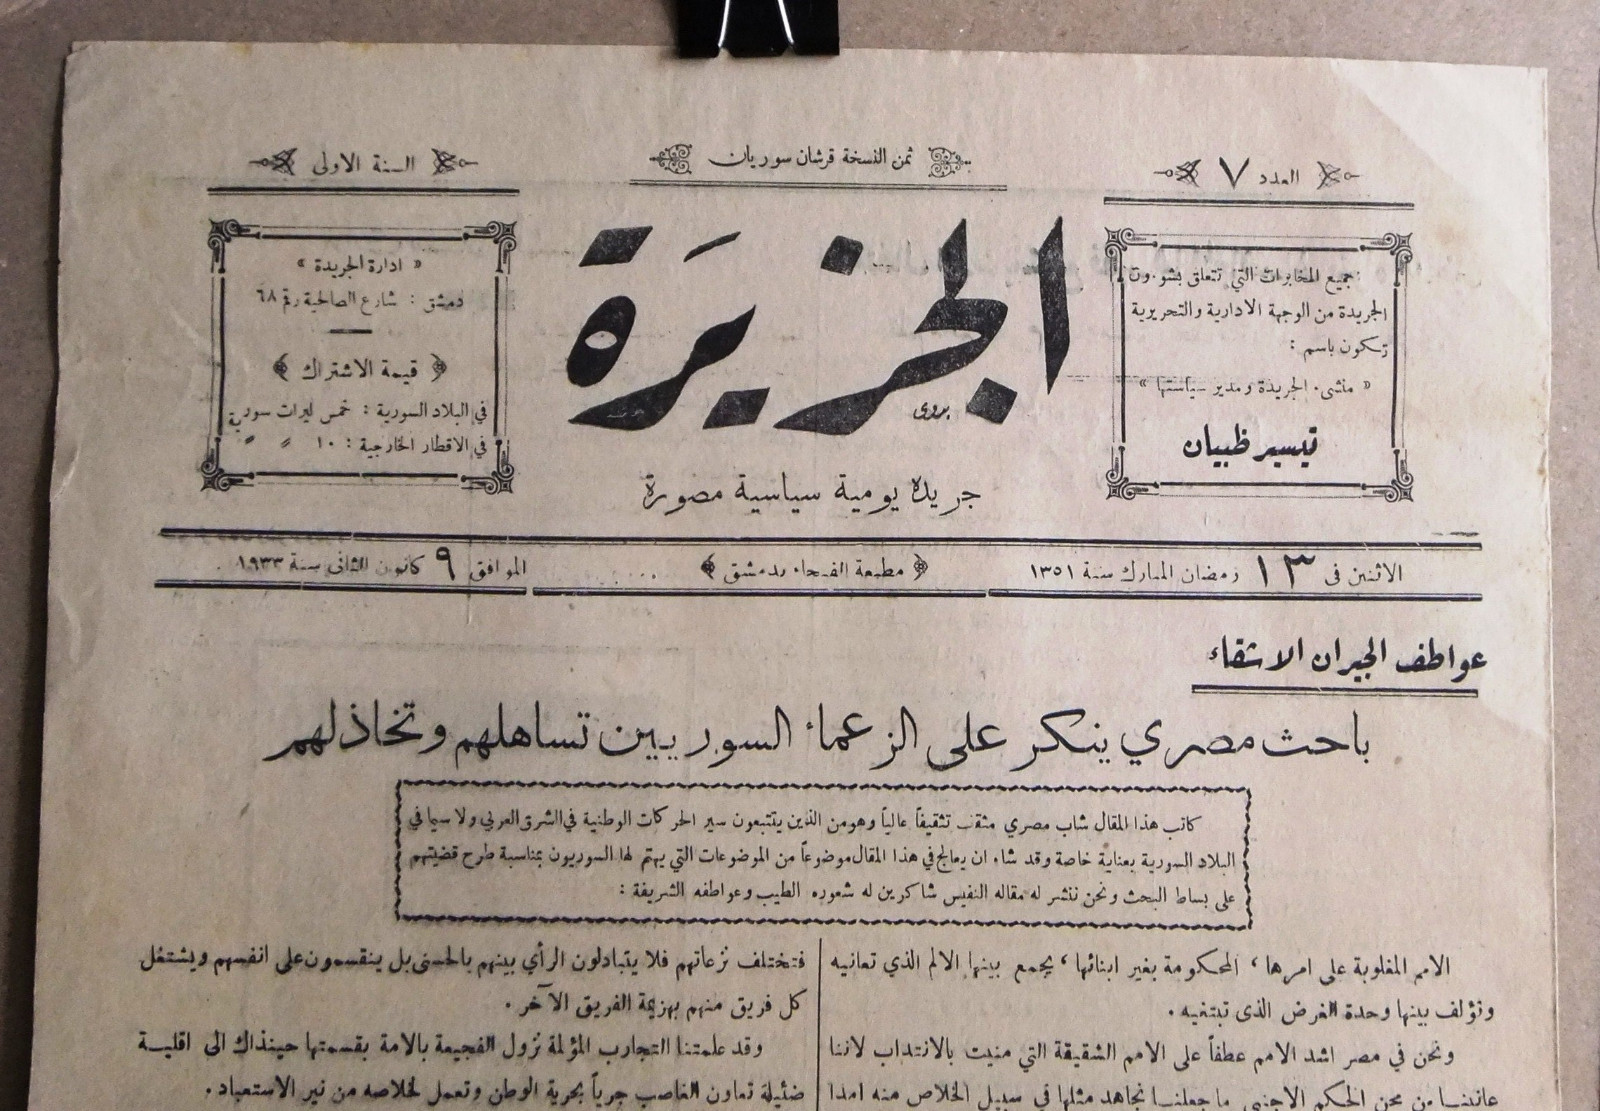 العدد ٧
ثمن النسخة قرشان سوريان
السنة الاولى
جميع المخابرات التي تتعلق بشؤون
الجريدة من الوجهة الادارية والتحريرية
تكون باسم :
« منشىء الجريدة ومدير سياستها »
تيسير ظبيان
الجزيرة
بدوى
جريدة يومية سياسية مصورة
« ادارة الجريدة »
دمشق : شارع الصالحية رقم ٦٨
قيمة الاشتراك
في البلاد السورية : خمس ليرات سورية
في الاقطار الخارجية : ١٠ » »
الاثنين في ١٣ رمضان المبارك سنة ١٣٥١
مطبعة الفيحاء بدمشق
الموافق ٩ كانون الثانى سنة ١٩٣٣
عواطف الجيران الاشقاء
باحث مصري ينكر على الزعماء السوريين تساهلهم وتخاذلهم
كاتب هذا المقال شاب مصري مثقف تثقيفاً عالياً وهو من الذين يتتبعون سير الحركات الوطنية في الشرق العربي ولا سيما في
البلاد السورية بعناية خاصة وقد شاء ان يعالج في هذا المقال موضوعاً من الموضوعات التي يهتم لها السوريون بمناسبة طرح قضيتهم
على بساط البحث ونحن ننشر له مقاله النفيس شاكرين له شعوره الطيب وعواطفه الشريفة :
الامم المغلوبة على امرها ، المحكومة بغير ابنائها ، يجمع بينها الالم الذي تعانيه
وتؤلف بينها وحدة الغرض الذى تبتغيه .
ونحن في مصر اشد الامم عطفاً على الامم الشقيقة التي منيت بالانتداب لاننا
عانينا من محن الحكم الاجنبي ما جعلنا نجاهد مثلها في سبيل الخلاص منه امدا
فتختلف نزعاتهم فلا يتبادلون الرأي بينهم بالحسنى بل ينقسمون على انفسهم ويشتغل
كل فريق منهم بهزيمة الفريق الآخر .
وقد علمتنا التجارب المؤلمة نزول الفجيعة بالامة بقسمتها حينذاك الى اقلية
ضئيلة تعاون الغاصب جرياً بحرية الوطن وتعمل لخلاصه من نير الاستعباد .